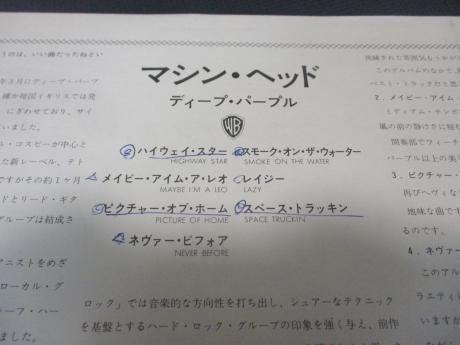 マシン・ヘッド
ディープ・パープル
WB
ハイウェイ・スター
HIGHWAY STAR
メイビー・アイム・ア・レオ
MAYBE I'M A LEO
ピクチャー・オブ・ホーム
PICTURE OF HOME
ネヴァー・ビフォア
NEVER BEFORE
スモーク・オン・ザ・ウォーター
SMOKE ON THE WATER
レイジー
LAZY
スペース・トラッキン
SPACE TRUCKIN'
うのは、いい曲だったねとい
年3月にディープ・パープ
確か母国イギリスでは発
にぎわせており、サイ
いました。
ム・コスビーが中心と
た新レーベル、テト
ですがその約1ヶ月
ドとリード・ギタ
グループは結成さ
アニストをめざ
ローカル・グ
ーフ・ハー
いました。
ロック」では音楽的な方向性を打ち出し、シュアーなテクニック
を基盤とするハード・ロック・グループの印象を強く与え、前作
このアルバムのなかで、
ベスト・トラックだと思
2．メイビー・アイム・
ミディアム・テンポ
嵐の前の静けさに
間奏部でフィーチ
パープル以上の美
3．ピクチャー・
再びヘヴィな
地味な曲です
るのです。
4．ネヴァー
このアル
ラエティに
いますが